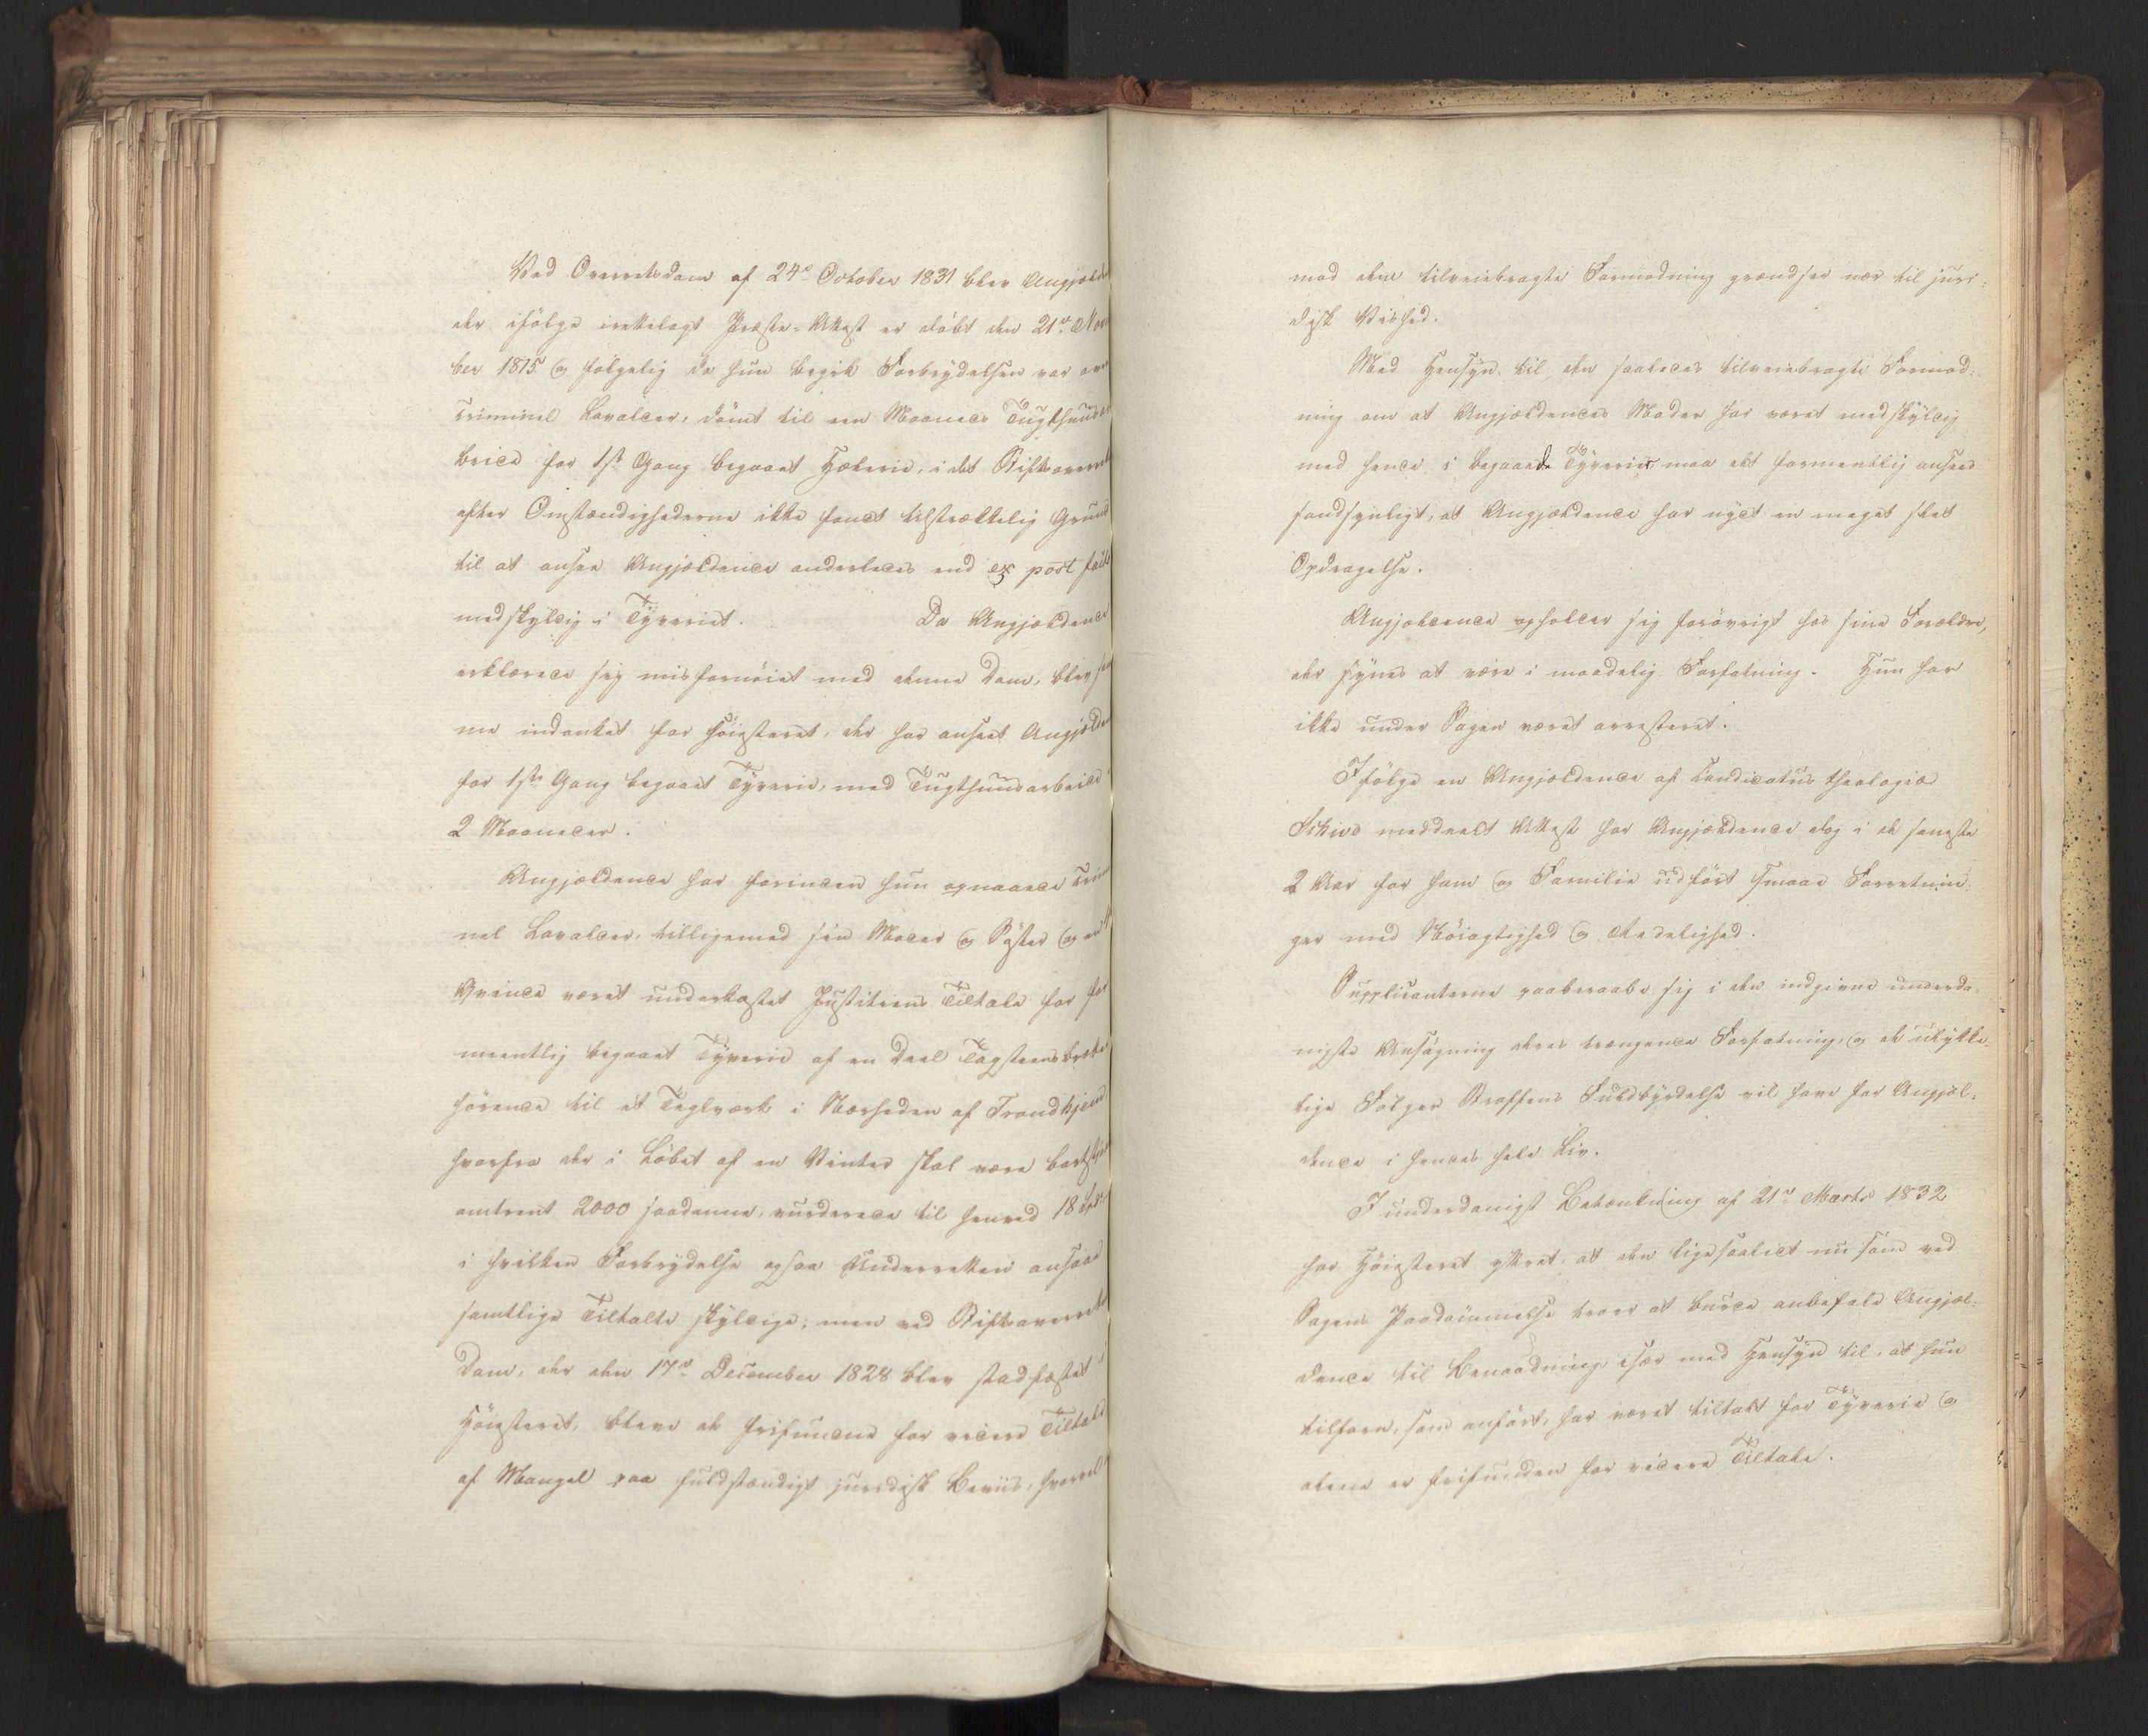 Ved Overretsdom af 24de October 1831 blev Angjæld
der ifölge irettelagt Præste-Attest er döbt den 21de Nov
ber 1815 og fölgelig da hun begik Forbrydelsen var over
criminel Lavalder, dömt til een Maaneds Tugthuusar
beide for 1ste Gang begaaet Hæleri, idet Stiftsoverret
efter Omstændighederne ikke fandt tilstrækkelig Grund
til at ansee Angjældende anderledes end ex post facto
medskyldig i Tyveriet. Da Angjældende
erklærede sig misfornöiet med denne Dom, blev sam
me indanket for Höiesteret, der har anseet Angjælden
for 1ste Gang begaaet Tyverie, med Tugthuusarbeide
2 Maaneder.
Angjældende har forinden hun opnaaede Crimi
nel Lavalder, tilligemed sin Moder og Söster og en
Qvinde været underkastet Justitiens Tiltale for for
meentlig begaaet Tyverie af en Deel Tagsteens
hörende til et Teglværk i Nærheden af Trondhjem
hvorfra der i Löbet af en Vinter skal være bortstjaa
omtrent 2000 saadanne, vurderede til henved 18 Spd
i hvilken Forbrydelse ogsaa Underretten ansaae
samtlige Tiltalte skyldige; men ved Stiftsoverrets
Dom, der den 17de December 1828 blev stadfæstet i
Höiesteret, bleve de frifundne for videre Tiltale
af Mangel paa fuldstændigt juridisk Beviis, hvorvel
mod dem tilveiebragte Formodning grændser nær til juri-
disk Vished.
Med Hensyn til den saaledes tilveiebragte Formod-
ning om at Angjældendes Moder har været medskyldig
med hende i begaaede Tyverier maa det formentlig ansees
sandsynligt, at Angjældende har nydt en meget slet
Opdragelse.
Angjældende opholder sig forövrigt hos sine Forældre,
der synes at være i maadelig Forfatning. Hun har
ikke under Sagen været arresteret.
Ifölge en Angjældende af Candidatus theologiæ
Schive meddeelt Attest har Angjældende dog i de seneste
2 Aar for ham og Familie udfört smaae Forretnin-
ger med Nöiagtighed og Redelighed.
Supplicanterne paaberaabe sig i den indgivne underda-
nigste Ansögning deres trængende Forfatning, og de ulykke-
lige Fölger Straffens Fuldbyrdelse vil have for Angjæl-
dende i hendes hele Liv.
I underdanigst Betænkning af 21de Marts 1832
har Höiesteret yttret, at den ligesaalidt nu som ved
Sagens Paadömmelse troer at burde anbefale Angjæl-
dende til Benaadning især med Hensyn til, at hun
tilforn, som anfört, har været tiltalt for Tyverie og
alene er frifunden for videre Tiltale.